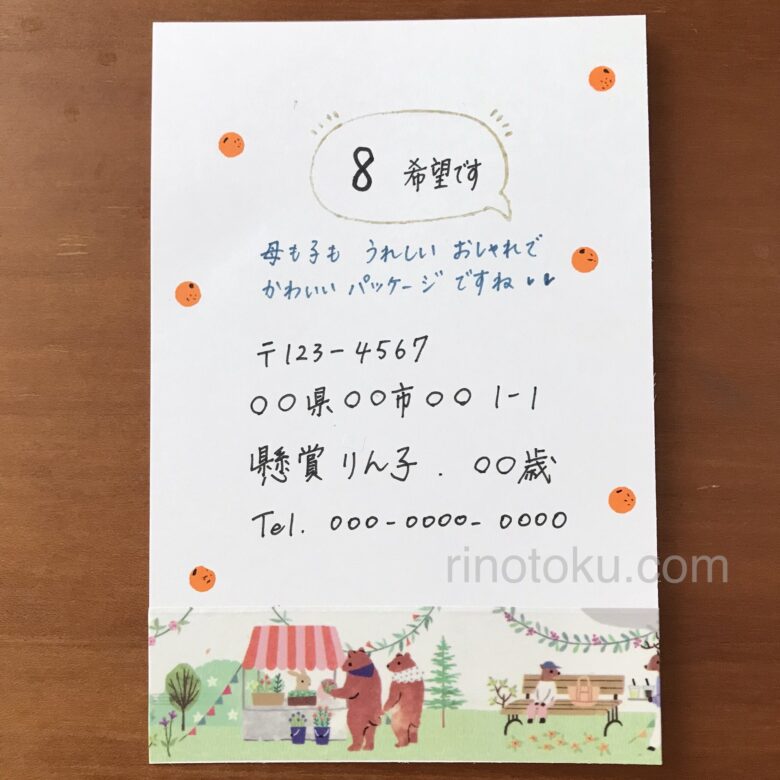 8 希望です
母も子も うれしい おしゃれで
かわいい パッケージ ですね
〒123-4567
〇〇県〇〇市〇〇 1-1
懸賞りん子. 〇〇歳
Tel. 000-0000-0000
rinotoku.com